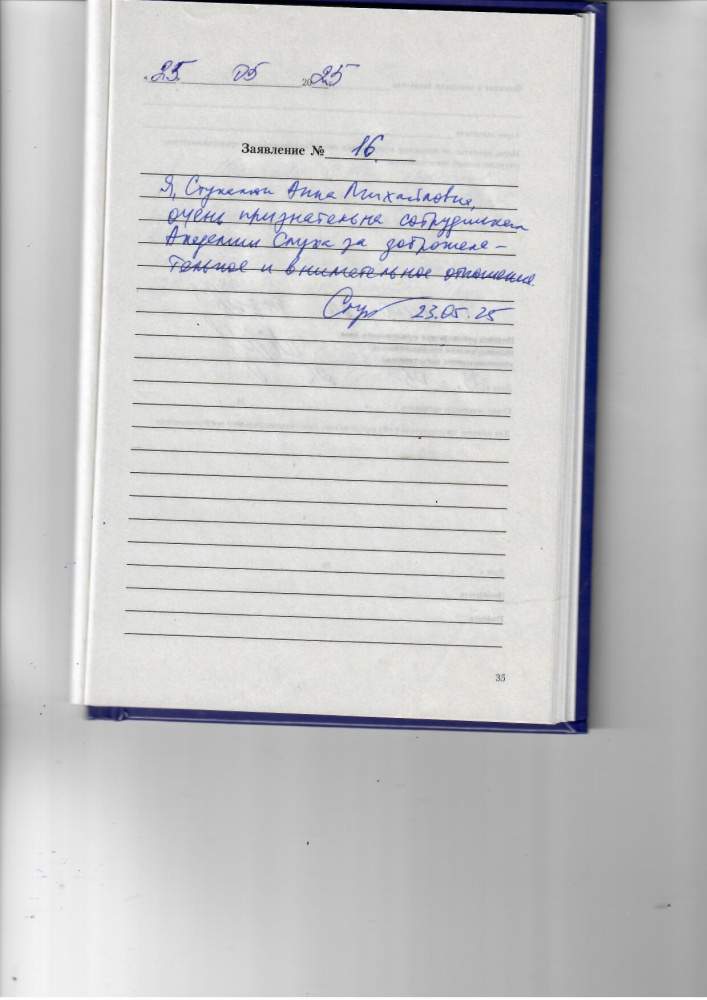 25 05 2025
Заявление № 16
Я, Анна Михайловна,
очень признательна сотрудникам
Академии Слуха за доброжела-
тельное и внимательное отношение.
23.05.25
35